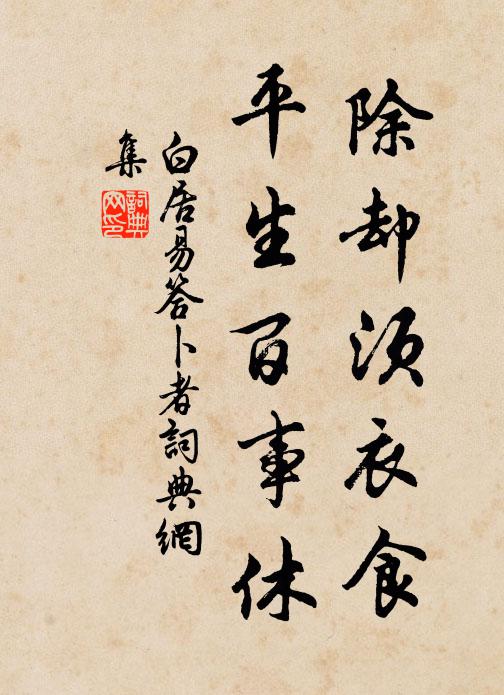 除却须衣食
平生百事休
白居易答卜者詞典網
集
詞典
网印